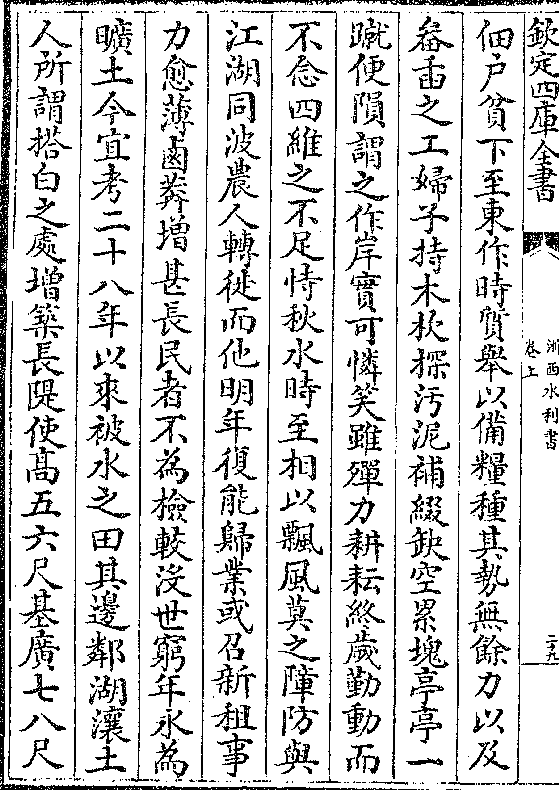 欽定四庫全書
浙西水利書
卷上
二十九
佃戶貧下至東作時質舉以備糧種其勢無餘力以及
畚臿之工婦子持木杴探污泥補綴缺空累塊亭亭一
蹴便隕謂之作岸實可憐笑雖殫力耕耘終歲勤動而
不念四維之不足恃秋水時至相以飄風莫之障防與
江湖同波農人轉徙而他明年復能歸業或召新租事
力愈薄鹵莽増甚長民者不為檢較没世窮年永為
曠土今宜考二十八年以來被水之田其邊鄰湖瀼土
人所謂搭白之處増築長隄使髙五六尺基廣七八尺